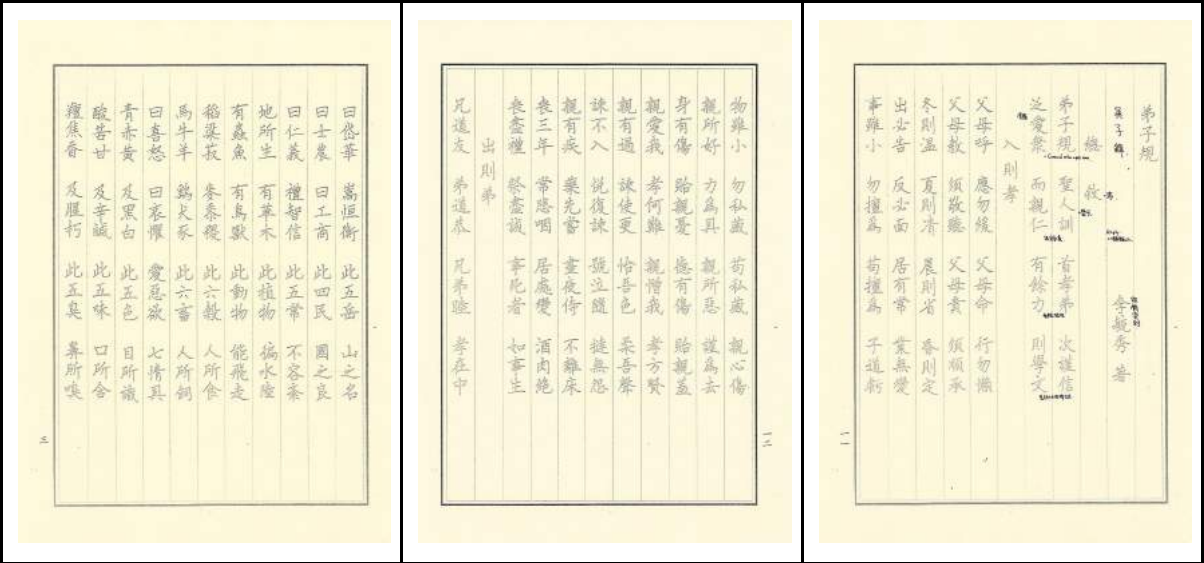 弟子規
李毓秀 著
總 敘
弟子規 聖人訓 首孝弟 次謹信
泛愛眾 而親仁 有餘力 則學文
入則孝
父母呼 應勿緩 父母命 行勿懶
父母教 須敬聽 父母責 須順承
冬則溫 夏則凊 晨則省 昏則定
出必告 反必面 居有常 業無變
事雖小 勿擅為 苟擅為 子道虧
一一
物雖小 勿私藏 苟私藏 親心傷
親所好 力為具 親所惡 謹為去
身有傷 貽親憂 德有傷 貽親羞
親愛我 孝何難 親憎我 孝方賢
親有過 諫使更 怡吾色 柔吾聲
諫不入 悅復諫 號泣隨 撻無怨
親有疾 藥先嘗 晝夜侍 不離床
喪三年 常悲咽 居處變 酒肉絕
喪盡禮 祭盡誠 事死者 如事生
出則弟
兄道友 弟道恭 兄弟睦 孝在中
一二
曰岱華 嵩恒衡 此五岳 山之名
曰士農 曰工商 此四民 國之良
曰仁義 禮智信 此五常 不容紊
地所生 有草木 此植物 徧水陸
有蟲魚 有鳥獸 此動物 能飛走
稻粱菽 麥黍稷 此六穀 人所食
馬牛羊 雞犬豕 此六畜 人所飼
曰喜怒 曰哀懼 愛惡欲 七情具
青赤黃 及黑白 此五色 目所識
酸苦甘 及辛鹹 此五味 口所含
羶焦香 及腥朽 此五臭 鼻所嗅
三